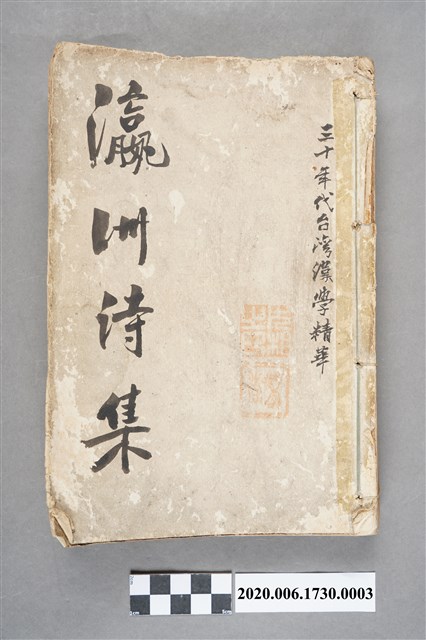 三十年代台湾漢學精華
瀛洲詩集
2020.006.1730.0003